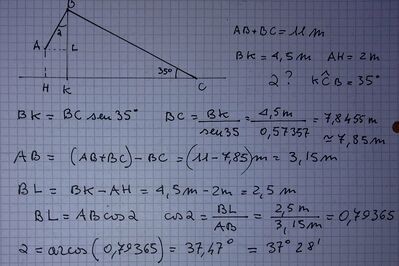 B
2
A
L
35°
H
K
C
AB+BC = 11 m
BK = 4,5 m AH = 2 m
2 ? KĈB = 35°
BK = BC sen 35° BC = BK / sen 35 = 4,5 m / 0,57357 = 7,8455 m
≃ 7,85 m
AB = (AB+BC) - BC = (11 - 7,85) m = 3,15 m
BL = BK - AH = 4,5 m - 2 m = 2,5 m
BL = AB cos 2 cos 2 = BL / AB = 2,5 m / 3,15 m = 0,79365
2 = arcos (0,79365) = 37,47° = 37° 28'